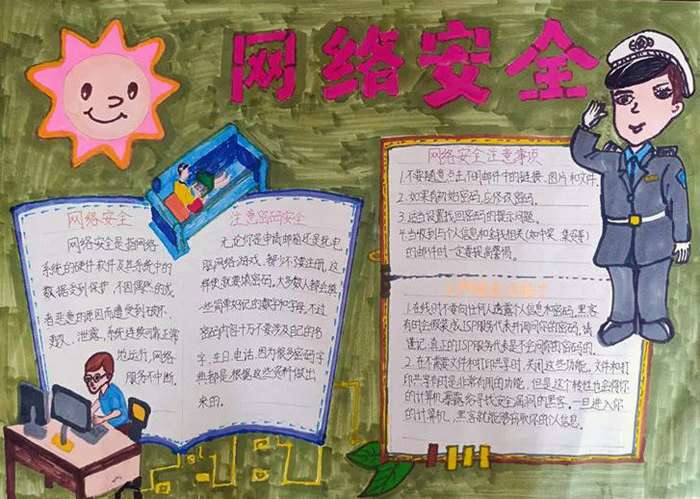 网络安全
网络安全
网络安全是指网络
系统的硬件软件及其系统中的
数据受到保护,不因偶然的或
者恶意的原因而遭受到破坏、
更改、泄露,系统连续可靠正常
地运行,网络
服务不中断.
注意密码安全
无论你是申请邮箱还是玩电
脑网络游戏,都少不了要注册,这
样你就要填密码。大多数人都会填
些简单好记的数字和字母。不过
密码内容千万不要涉及自己的名
字、生日、电话,因为很多密码字
典都是根据这些资料做出
来的.
网络安全注意事项
1.不要随意点击不明邮件中的链接、图片和文件.
2.如果有初始密码,应修改密码.
3.适当设置找回密码的提示问题.
4.当收到与个人信息和金钱相关(如中奖、集资等)
的邮件时一定要提高警惕。
1.在线时不要向任何人透露个人信息和密码。黑客
有时会假装成ISP服务代表并询问你的密码。请
谨记:真正的ISP服务代表是不会问你的密码的.
2.在不需要文件和打印共享时,关闭这些功能。文件和打
印共享有时是非常有用的功能,但是这个特性也会将你
的计算机暴露给寻找安全漏洞的黑客。一旦进入你
的计算机,黑客就能够窃取你的个人信息。